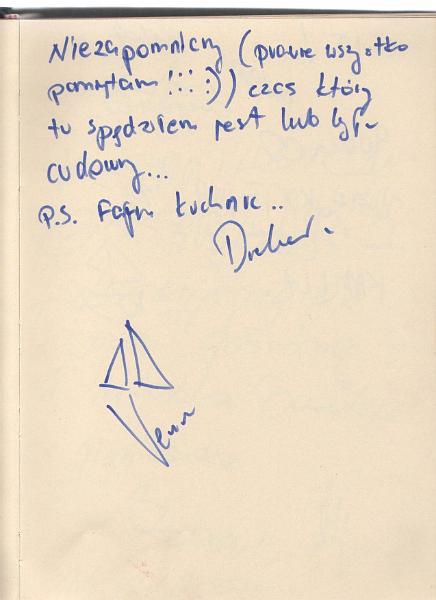 Niezapomniany (prawie wszystko
pamiętam !!! :)) czas który
tu spędziłem jest lub był
cudowny...
P.S. Fajna kuchnia..